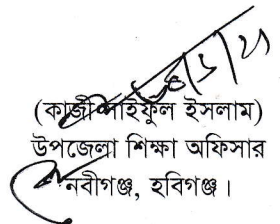 (কাজী সাইফুল ইসলাম)
উপজেলা শিক্ষা অফিসার
নবীগঞ্জ, হবিগঞ্জ।